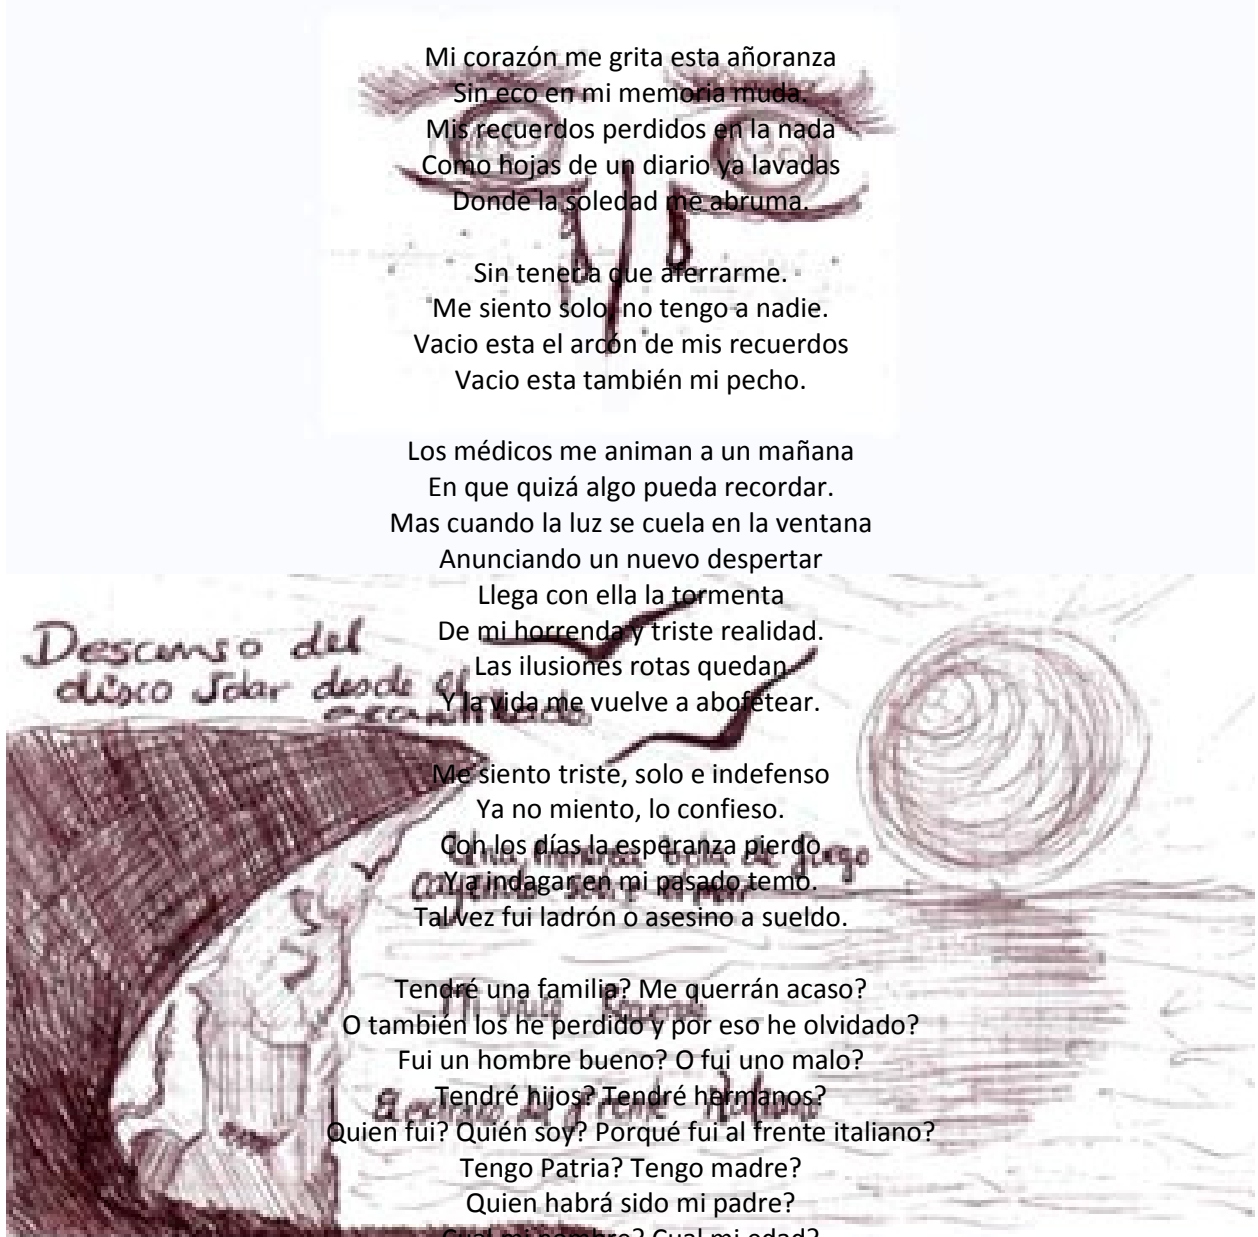 Mi corazón me grita esta añoranza
Sin eco en mi memoria muda.
Mis recuerdos perdidos en la nada
Como hojas de un diario ya lavadas
Donde la soledad me abruma.
Sin tener a que aferrarme.
Me siento solo, no tengo a nadie.
Vacio esta el arcón de mis recuerdos
Vacio esta también mi pecho.
Los médicos me animan a un mañana
En que quizá algo pueda recordar.
Mas cuando la luz se cuela en la ventana
Anunciando un nuevo despertar
Llega con ella la tormenta
De mi horrenda y triste realidad.
Las ilusiones rotas quedan
Y la vida me vuelve a abofetear.
Descanso del
disco Solar desde el
acantilado
Me siento triste, solo e indefenso
Ya no miento, lo confieso.
Con los días la esperanza pierdo.
Y a indagar en mi pasado temo.
Tal vez fui ladrón o asesino a sueldo.
Una inmensa bola de fuego
Tendré una familia? Me querrán acaso?
O también los he perdido y por eso he olvidado?
Fui un hombre bueno? O fui uno malo?
Tendré hijos? Tendré hermanos?
Quien fui? Quién soy? Porqué fui al frente italiano?
Tengo Patria? Tengo madre?
Quien habrá sido mi padre?
Cual mi nombre? Cual mi edad?